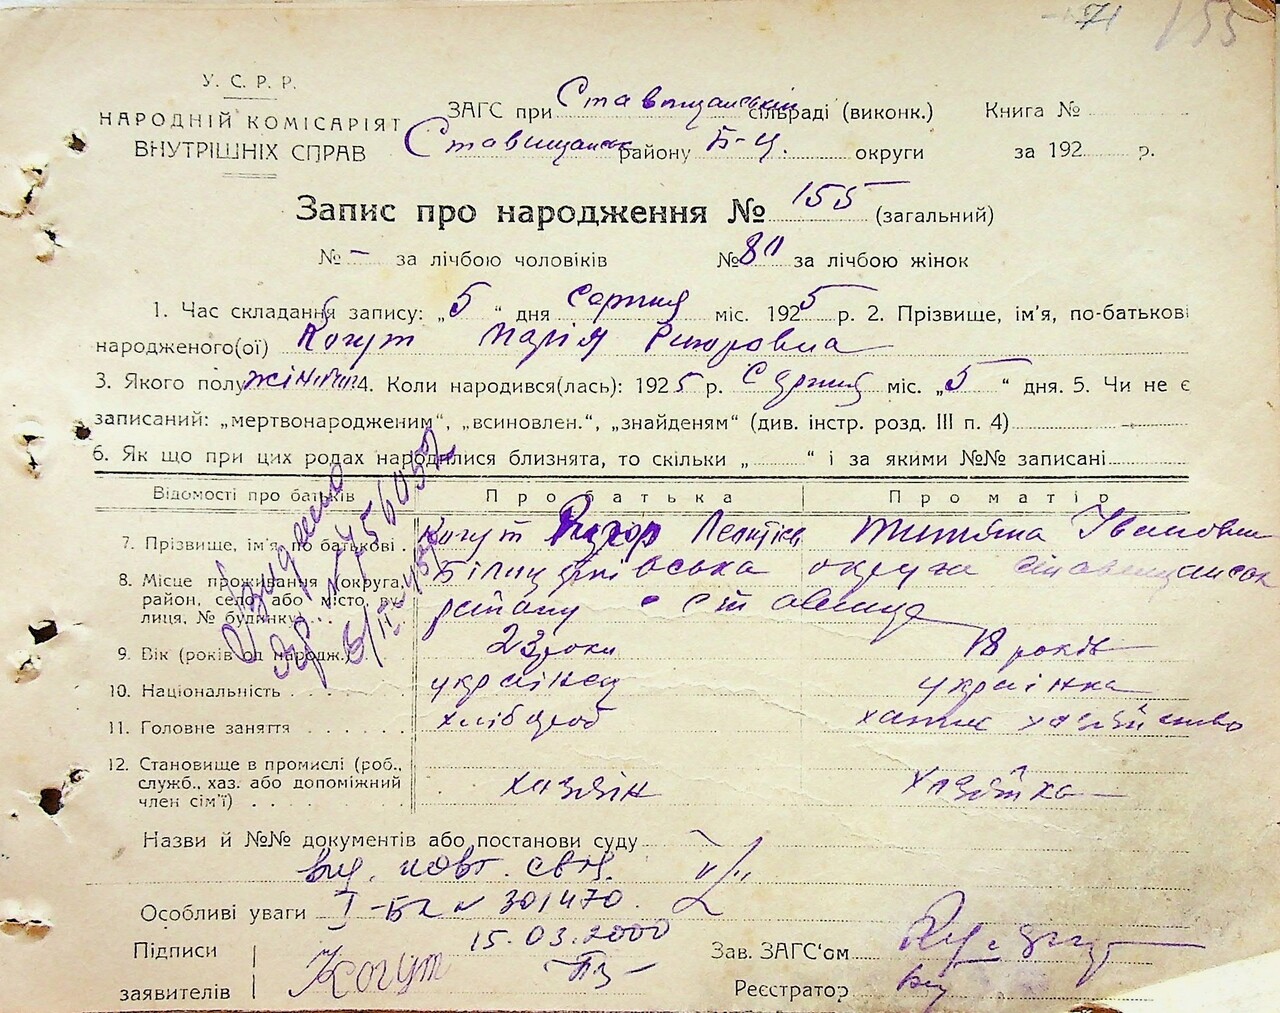 71 155
У. С. Р. Р.
НАРОДНІЙ КОМІСАРІЯТ
ВНУТРІШНІХ СПРАВ
ЗАГС при Ставищанській сільраді (виконк.) Книга №
Ставищанськ району Б-Ц. округи за 192 р.
Запис про народження № 155 (загальний)
№ - за лічбою чоловіків № 80 за лічбою жінок
1. Час складання запису: „5“ дня Серпня міс. 1925 р. 2. Прізвище, ім'я, по-батькові
народженого(ої) Когут Марія
3. Якого полу жіночи 4. Коли народився(лась): 1925 р. Серпня міс. „5“ дня. 5. Чи не є
записаний: „мертвонародженим“, „всиновлен.“, „знайденям“ (див. інстр. розд. III п. 4)
6. Як що при цих родах народилися близнята, то скільки „ “ і за якими №№ записані
Відомості про батьків Про батька Про матір
7. Прізвище, ім'я, по батькові . Когут Тетяна Івановна
8. Місце проживання (округа, Білоцерківська округа Ставищанськ
район, село або місто, вулиця, № будинку) . . району с Ставище
9. Вік (років од народж.) . 23 роки 18 років
10. Національність . . . . . українец українка
11. Головне заняття . . . . . хлібороб хатнє хазяйство
12. Становище в промислі (роб., служб., хаз. або допоміжний член сім'ї) . . . . хазяїн хазяйка
Видано
№ 756052
Назви й №№ документів або постанови суду
вид. повт. свід.
Особливі уваги I-БК № 301470.
15.03.2000
Підписи
заявителів Когут
Зав. ЗАГС'ом
Реєстратор